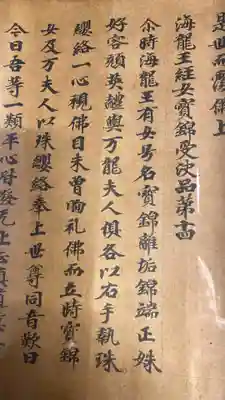 是世而處佛上
海龍王經女寶錦受決品第十四
尒時海龍王有女号名寶錦離垢錦端正姝
好容顏英艶與万龍夫人俱各以右手執珠
瓔珞一心視佛目未曾眴礼佛而立時寶錦
女及万夫人以珠瓔珞奉上世尊同音歎曰
今日吾等一類平心皆發无上正真道意